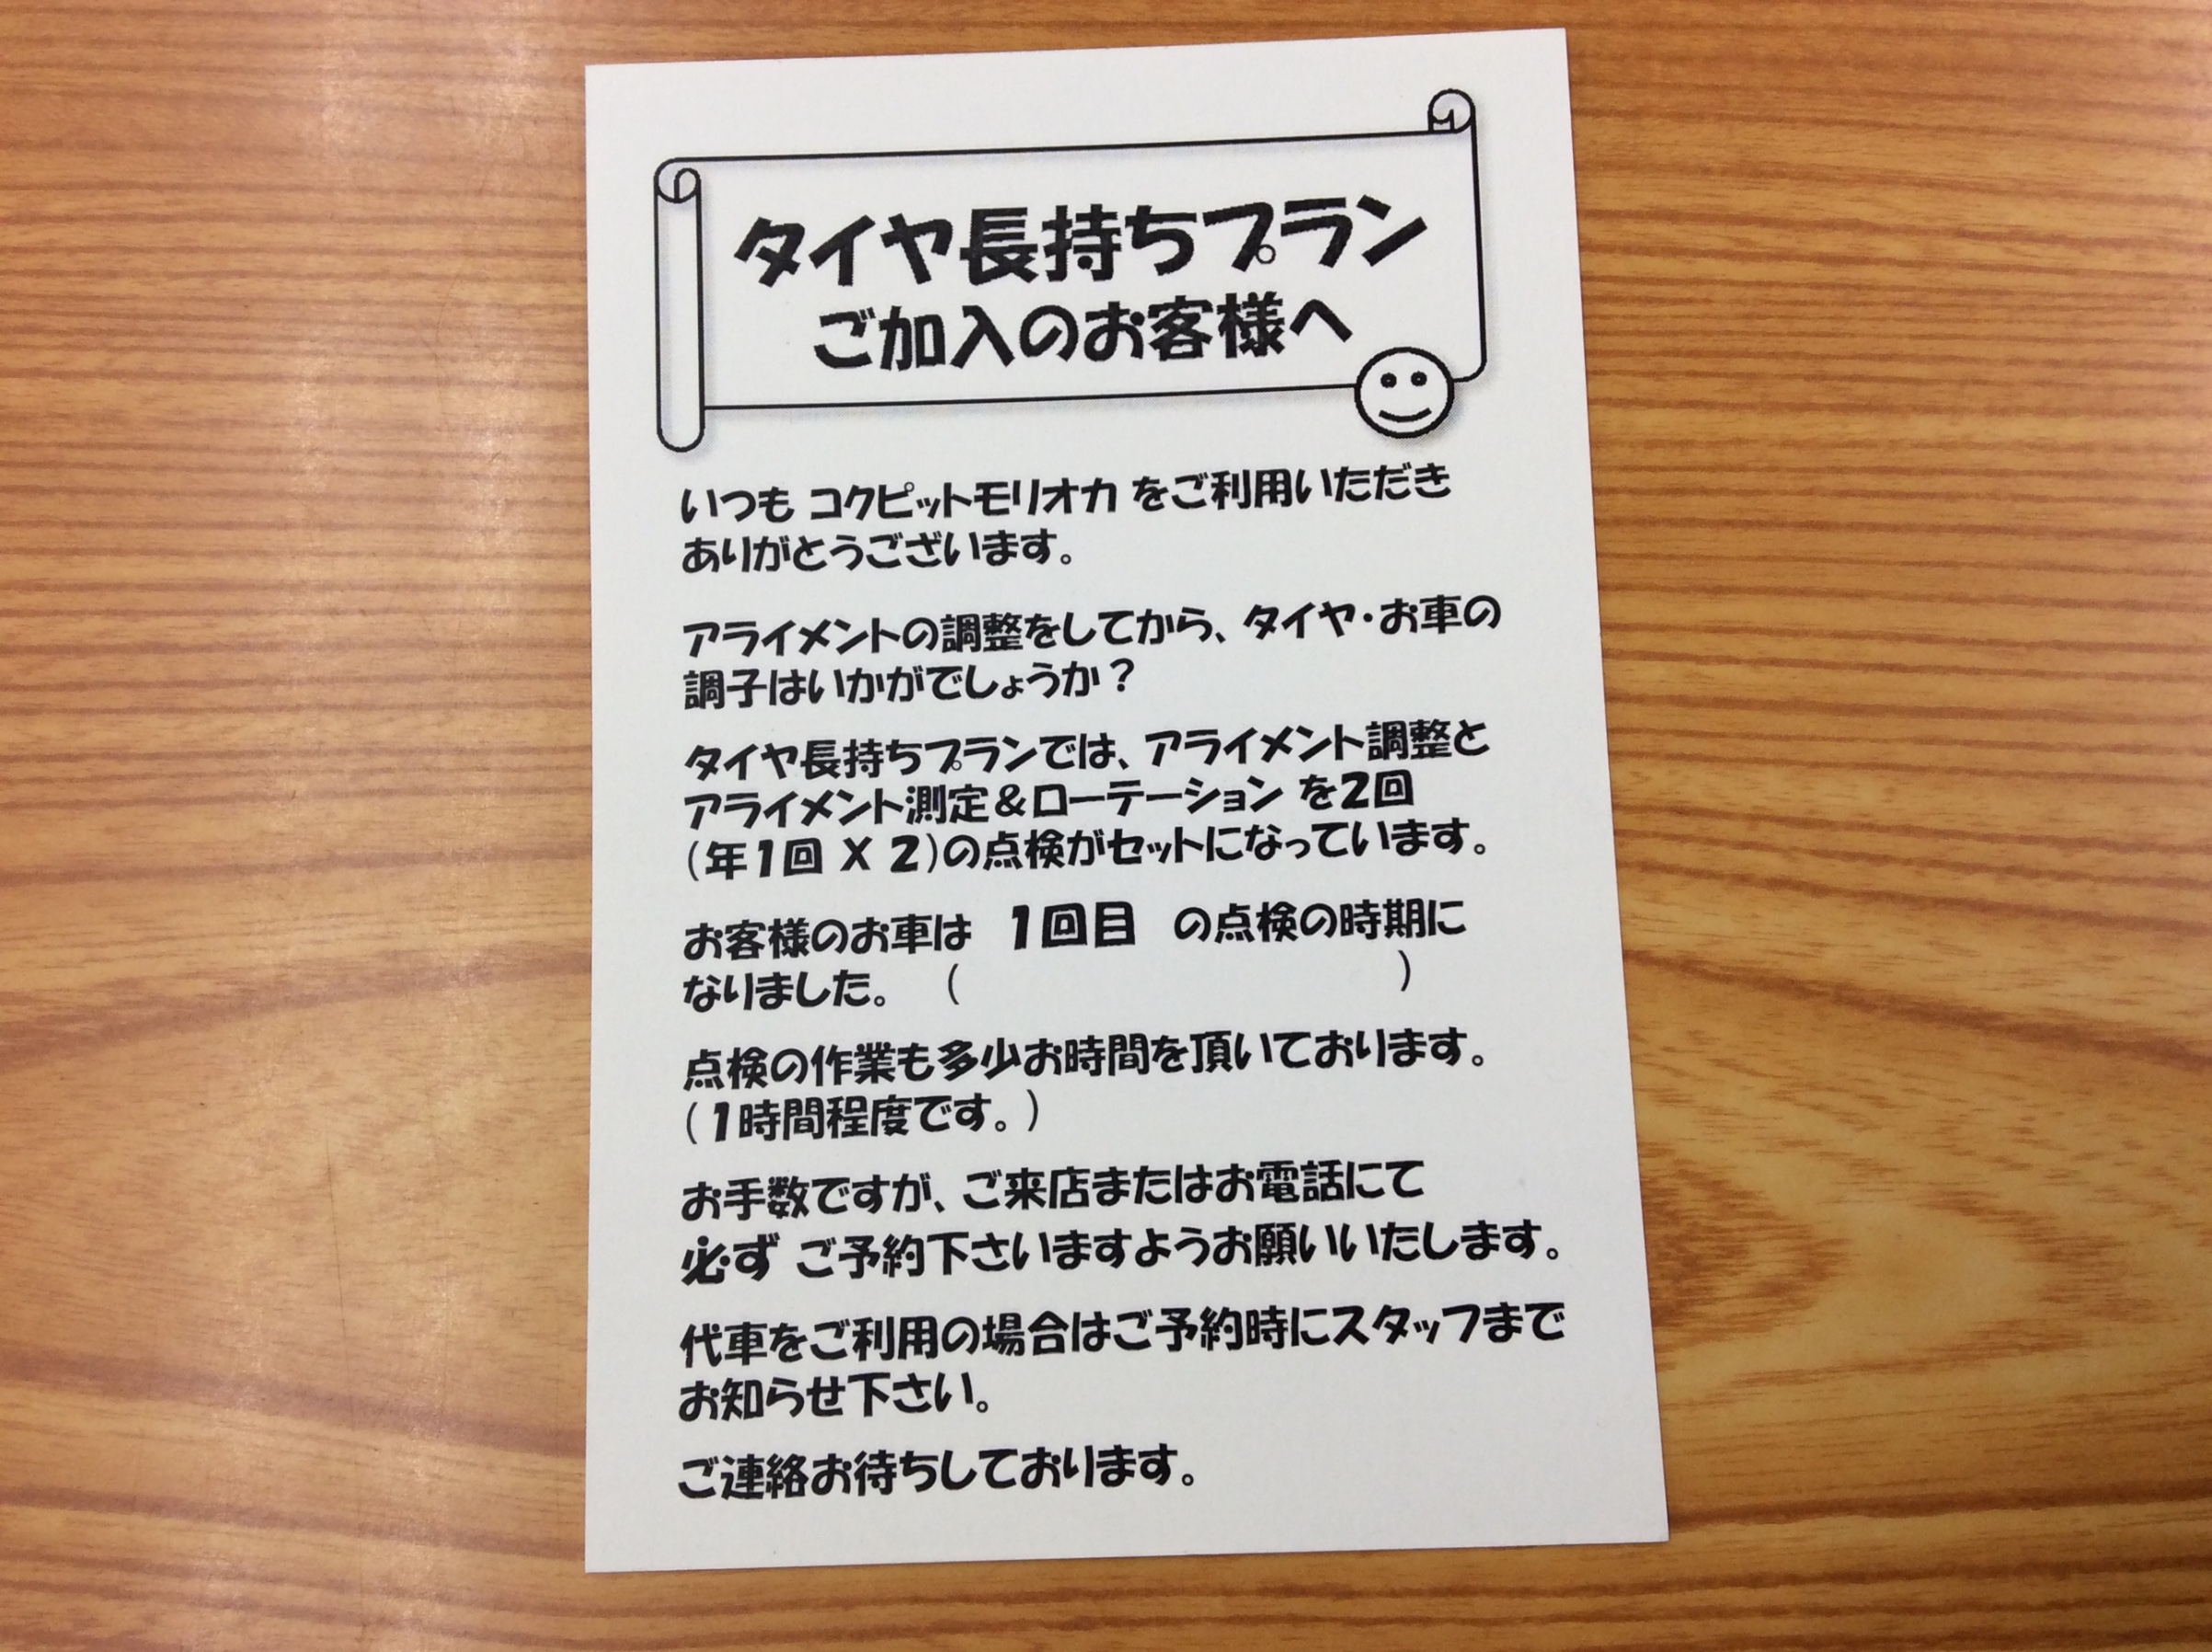 タイヤ長持ちプラン
ご加入のお客様へ
いつも コクピットモリオカ をご利用いただき
ありがとうございます。
アライメントの調整をしてから、タイヤ・お車の
調子はいかがでしょうか？
タイヤ長持ちプランでは、アライメント調整と
アライメント測定＆ローテーション を2回
(年1回 X 2)の点検がセットになっています。
お客様のお車は 1回目 の点検の時期に
なりました。 ( )
点検の作業も多少お時間を頂いております。
(1時間程度です。)
お手数ですが、ご来店またはお電話にて
必ず ご予約下さいますようお願いいたします。
代車をご利用の場合はご予約時にスタッフまで
お知らせ下さい。
ご連絡お待ちしております。